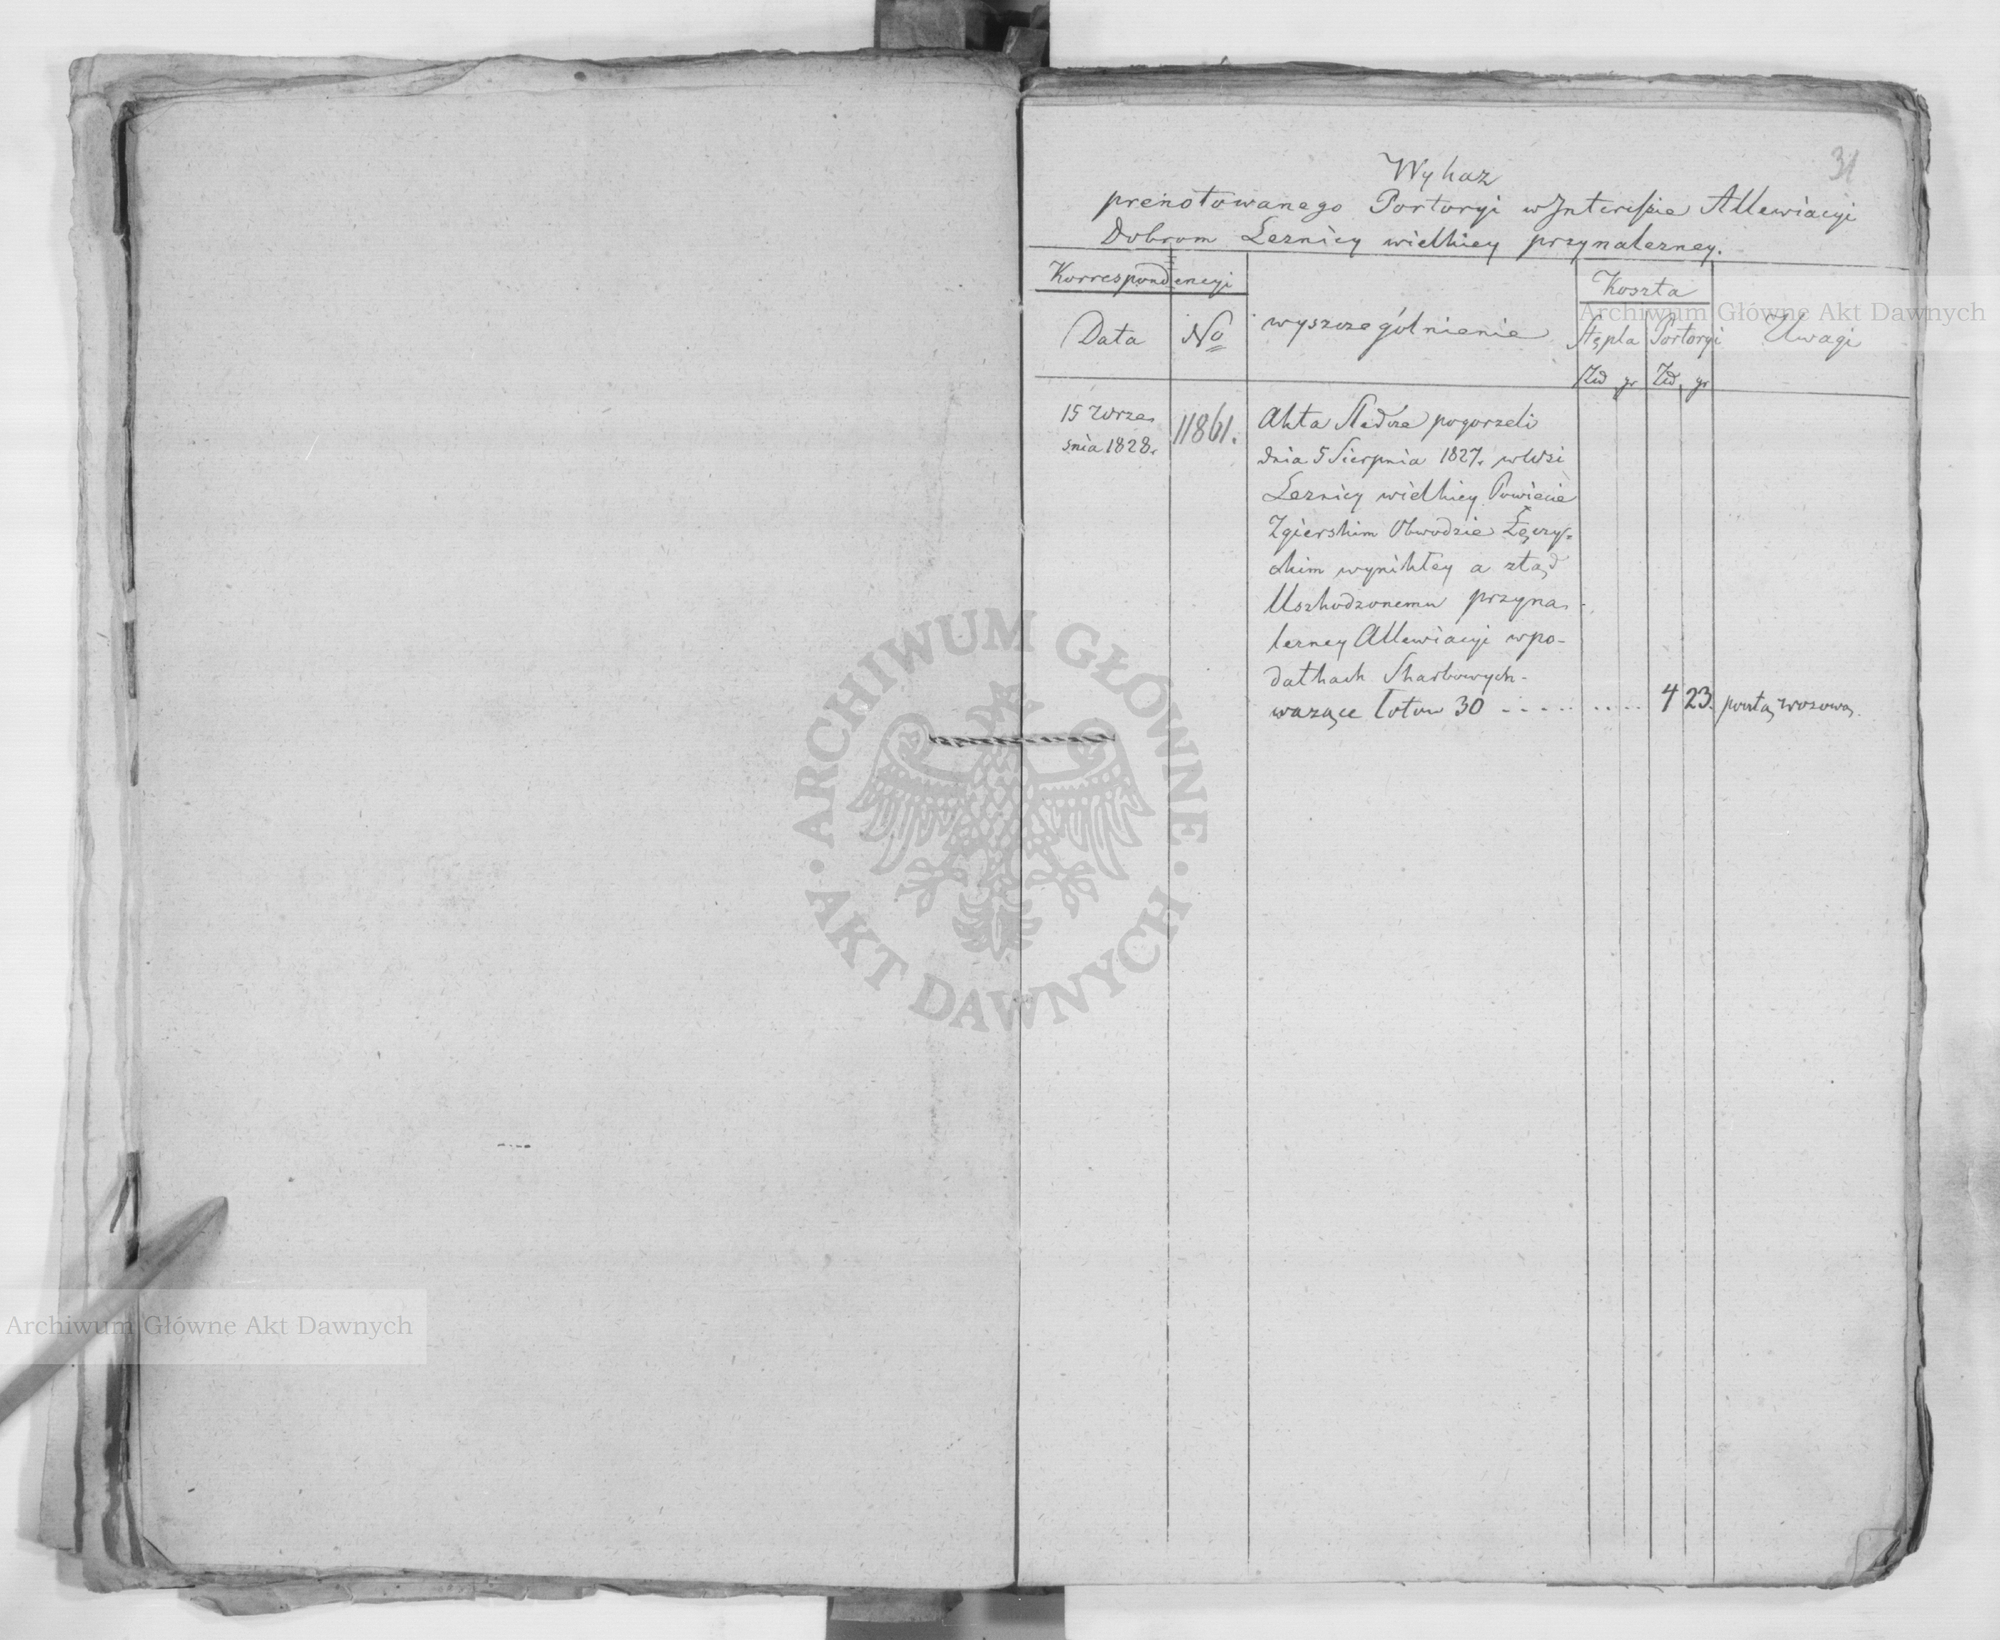 31
Wykaz
prenotowanego Portoryi w Interessie Allewiacyi
Dobrom Leznicy wielkiey przynalezney.
Korrespondencyi
Koszta
Data
No
wyszczególnienie
Stępla
Portoryi
Uwagi
Złł gr
Złł gr
15 Wrze,
śnia 1828.
11861.
Akta Sledcze pogorzeli
dnia 5 Sierpnia 1827. w Wsi
Leznicy wielkiey Powiecie
Zgierskim Obwodzie Łęczy=
ckim wynikłey a ztąd
Uszkodzonemu przyna,
lezney Allewiacyi w po-
datkach Skarbowych-
ważące łotow 30 - - - - - . . . . 4 23. pocztą wozową.
ARCHIWUM GŁÓWNE AKT DAWNYCH
Archiwum Główne Akt Dawnych
Archiwum Główne Akt Dawnych